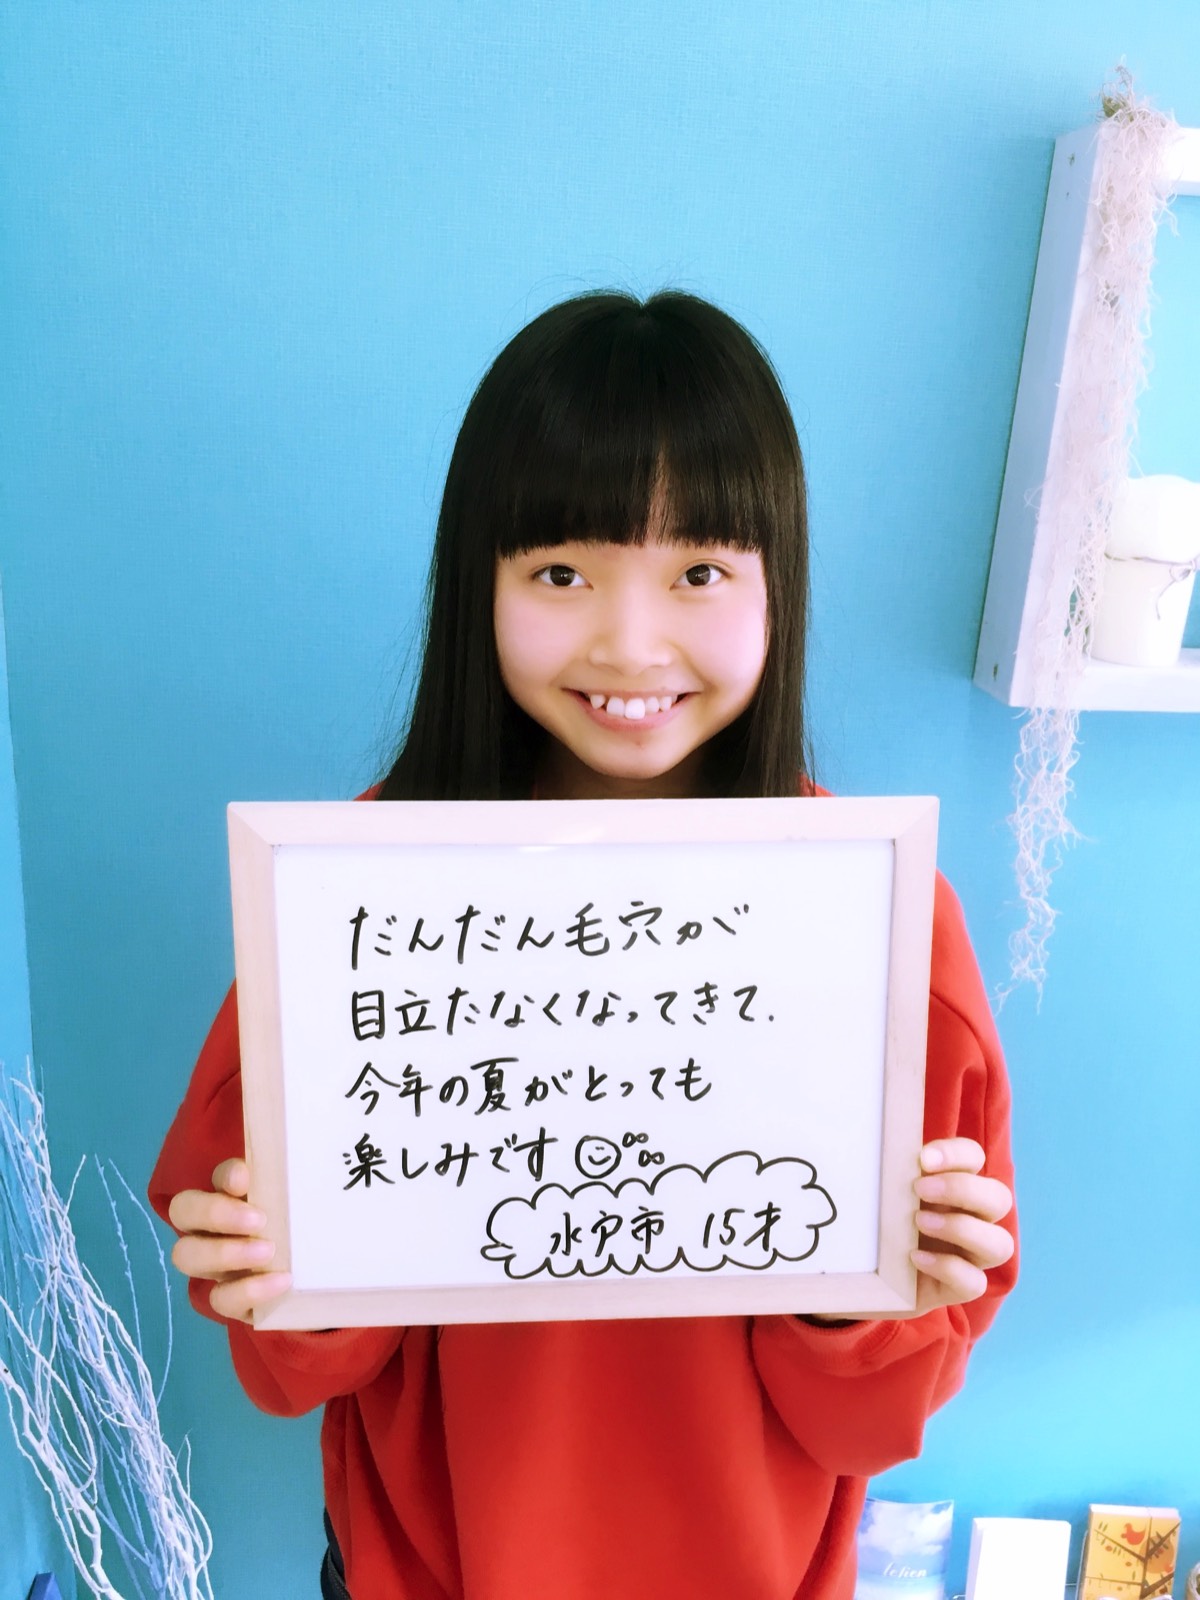 だんだん毛穴が
目立たなくなってきて.
今年の夏がとっても
楽しみです
水戸市 15才